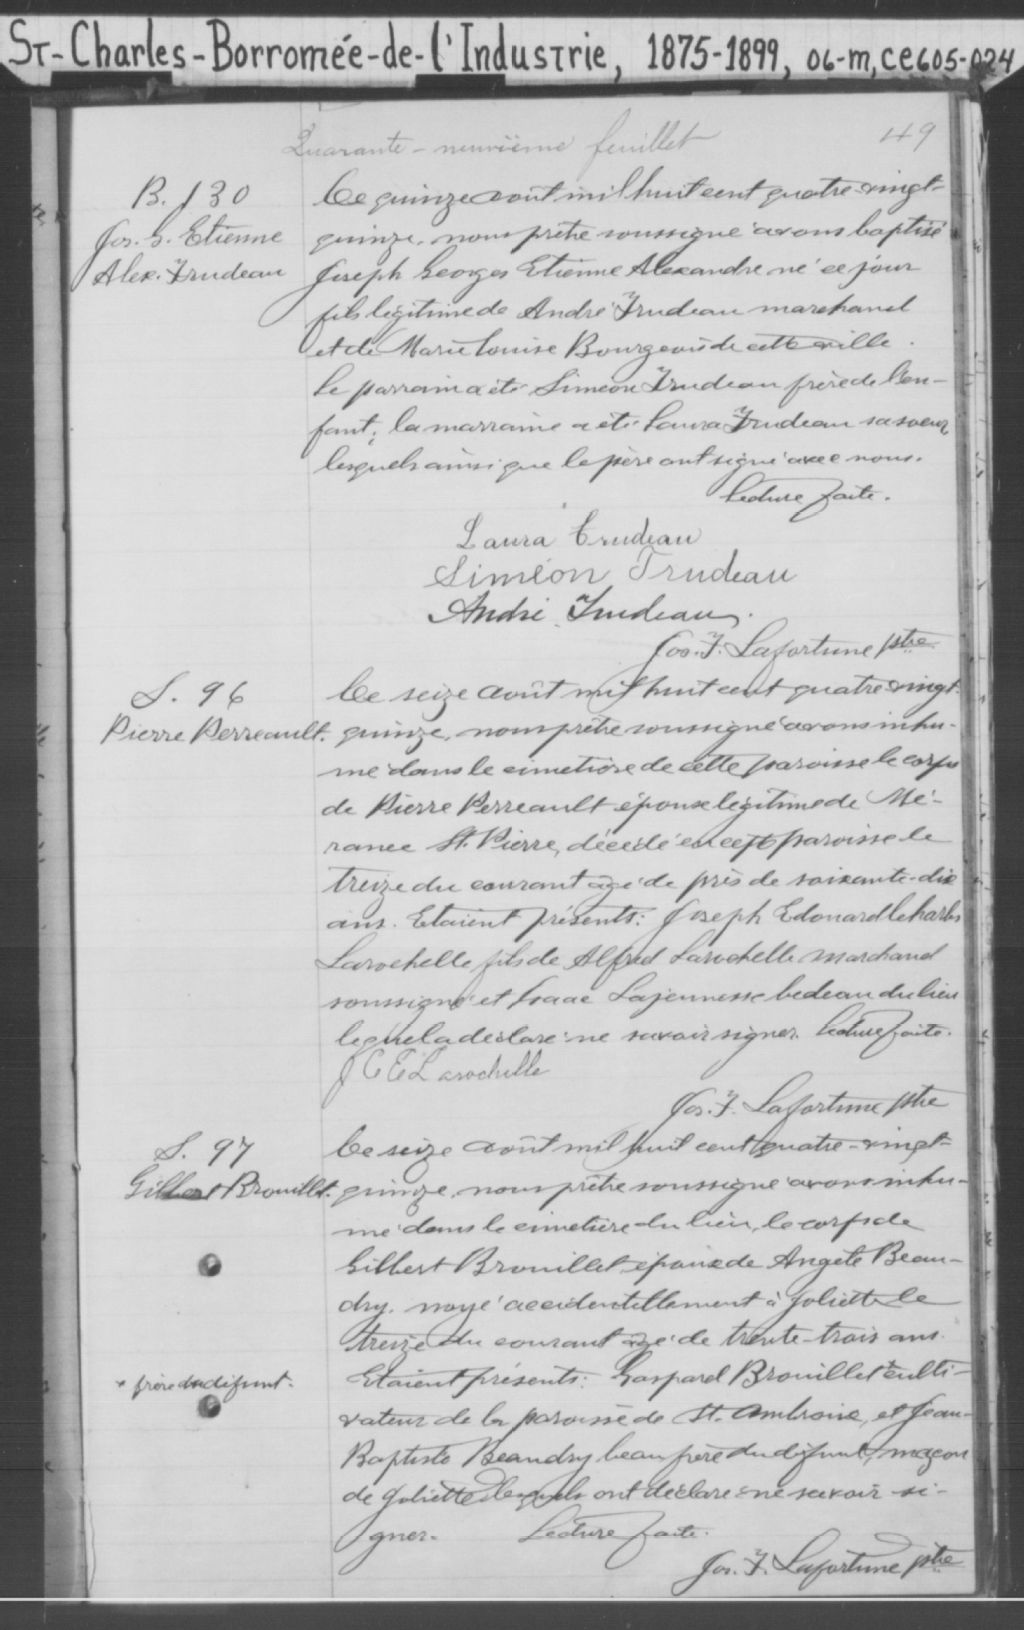 ST-Charles-Borromée-de-l'Industrie, 1875-1899, 06-m,CE605-024
Quarante-neuvième feuillet 49
B. 130
Jos. G. Etienne
Alex. Trudeau
Ce quinze août mil huit cent quatre-vingt-
quinze, nous prêtre soussigné avons baptisé
Joseph Georges Etienne Alexandre né ce jour
fils légitime de André Trudeau marchand
et de Marie Louise Bourgeois de cette ville.
Le parrain a été Siméon Trudeau frère de l'en-
fant; la marraine a été Laura Trudeau sa soeur
lesquels ainsi que le père ont signé avec nous.
Lecture faite.
Laura Trudeau
Siméon Trudeau
André Trudeau.
Jos. F. Lafortune ptre
S. 96
Pierre Perreault.
Ce seize août mil huit cent quatre-vingt-
quinze, nous prêtre soussigné avons inhu-
mé dans le cimetière de cette paroisse le corps
de Pierre Perreault époux légitime de Mé-
rance St. Pierre, décédé en cette paroisse le
treize du courant âgé de près de soixante-dix
ans. Etaient présents: Joseph Edouard Charles
Larochelle fils de Alfred Larochelle marchand
soussigné et Isaac Lajeunesse bedeau du lieu
lequel a déclaré ne savoir signer. Lecture faite.
J C E Larochelle
Jos. F. Lafortune ptre
S. 97
Gilbert Brouillet.
Ce seize août mil huit cent quatre-vingt-
quinze, nous prêtre soussigné avons inhu-
mé dans le cimetière du lieu, le corps de
Gilbert Brouillet époux de Angèle Beau-
dry, noyé accidentellement à Joliette le
treize du courant âgé de trente-trois ans.
* frère du défunt.
Etaient présents: Gaspard Brouillet * culti-
vateur de la paroisse de St. Ambroise, et Jean-
Baptiste Beaudry beau père du défunt, maçon
de Joliette lesquels ont déclaré ne savoir si-
gner. Lecture faite.
Jos. F. Lafortune ptre